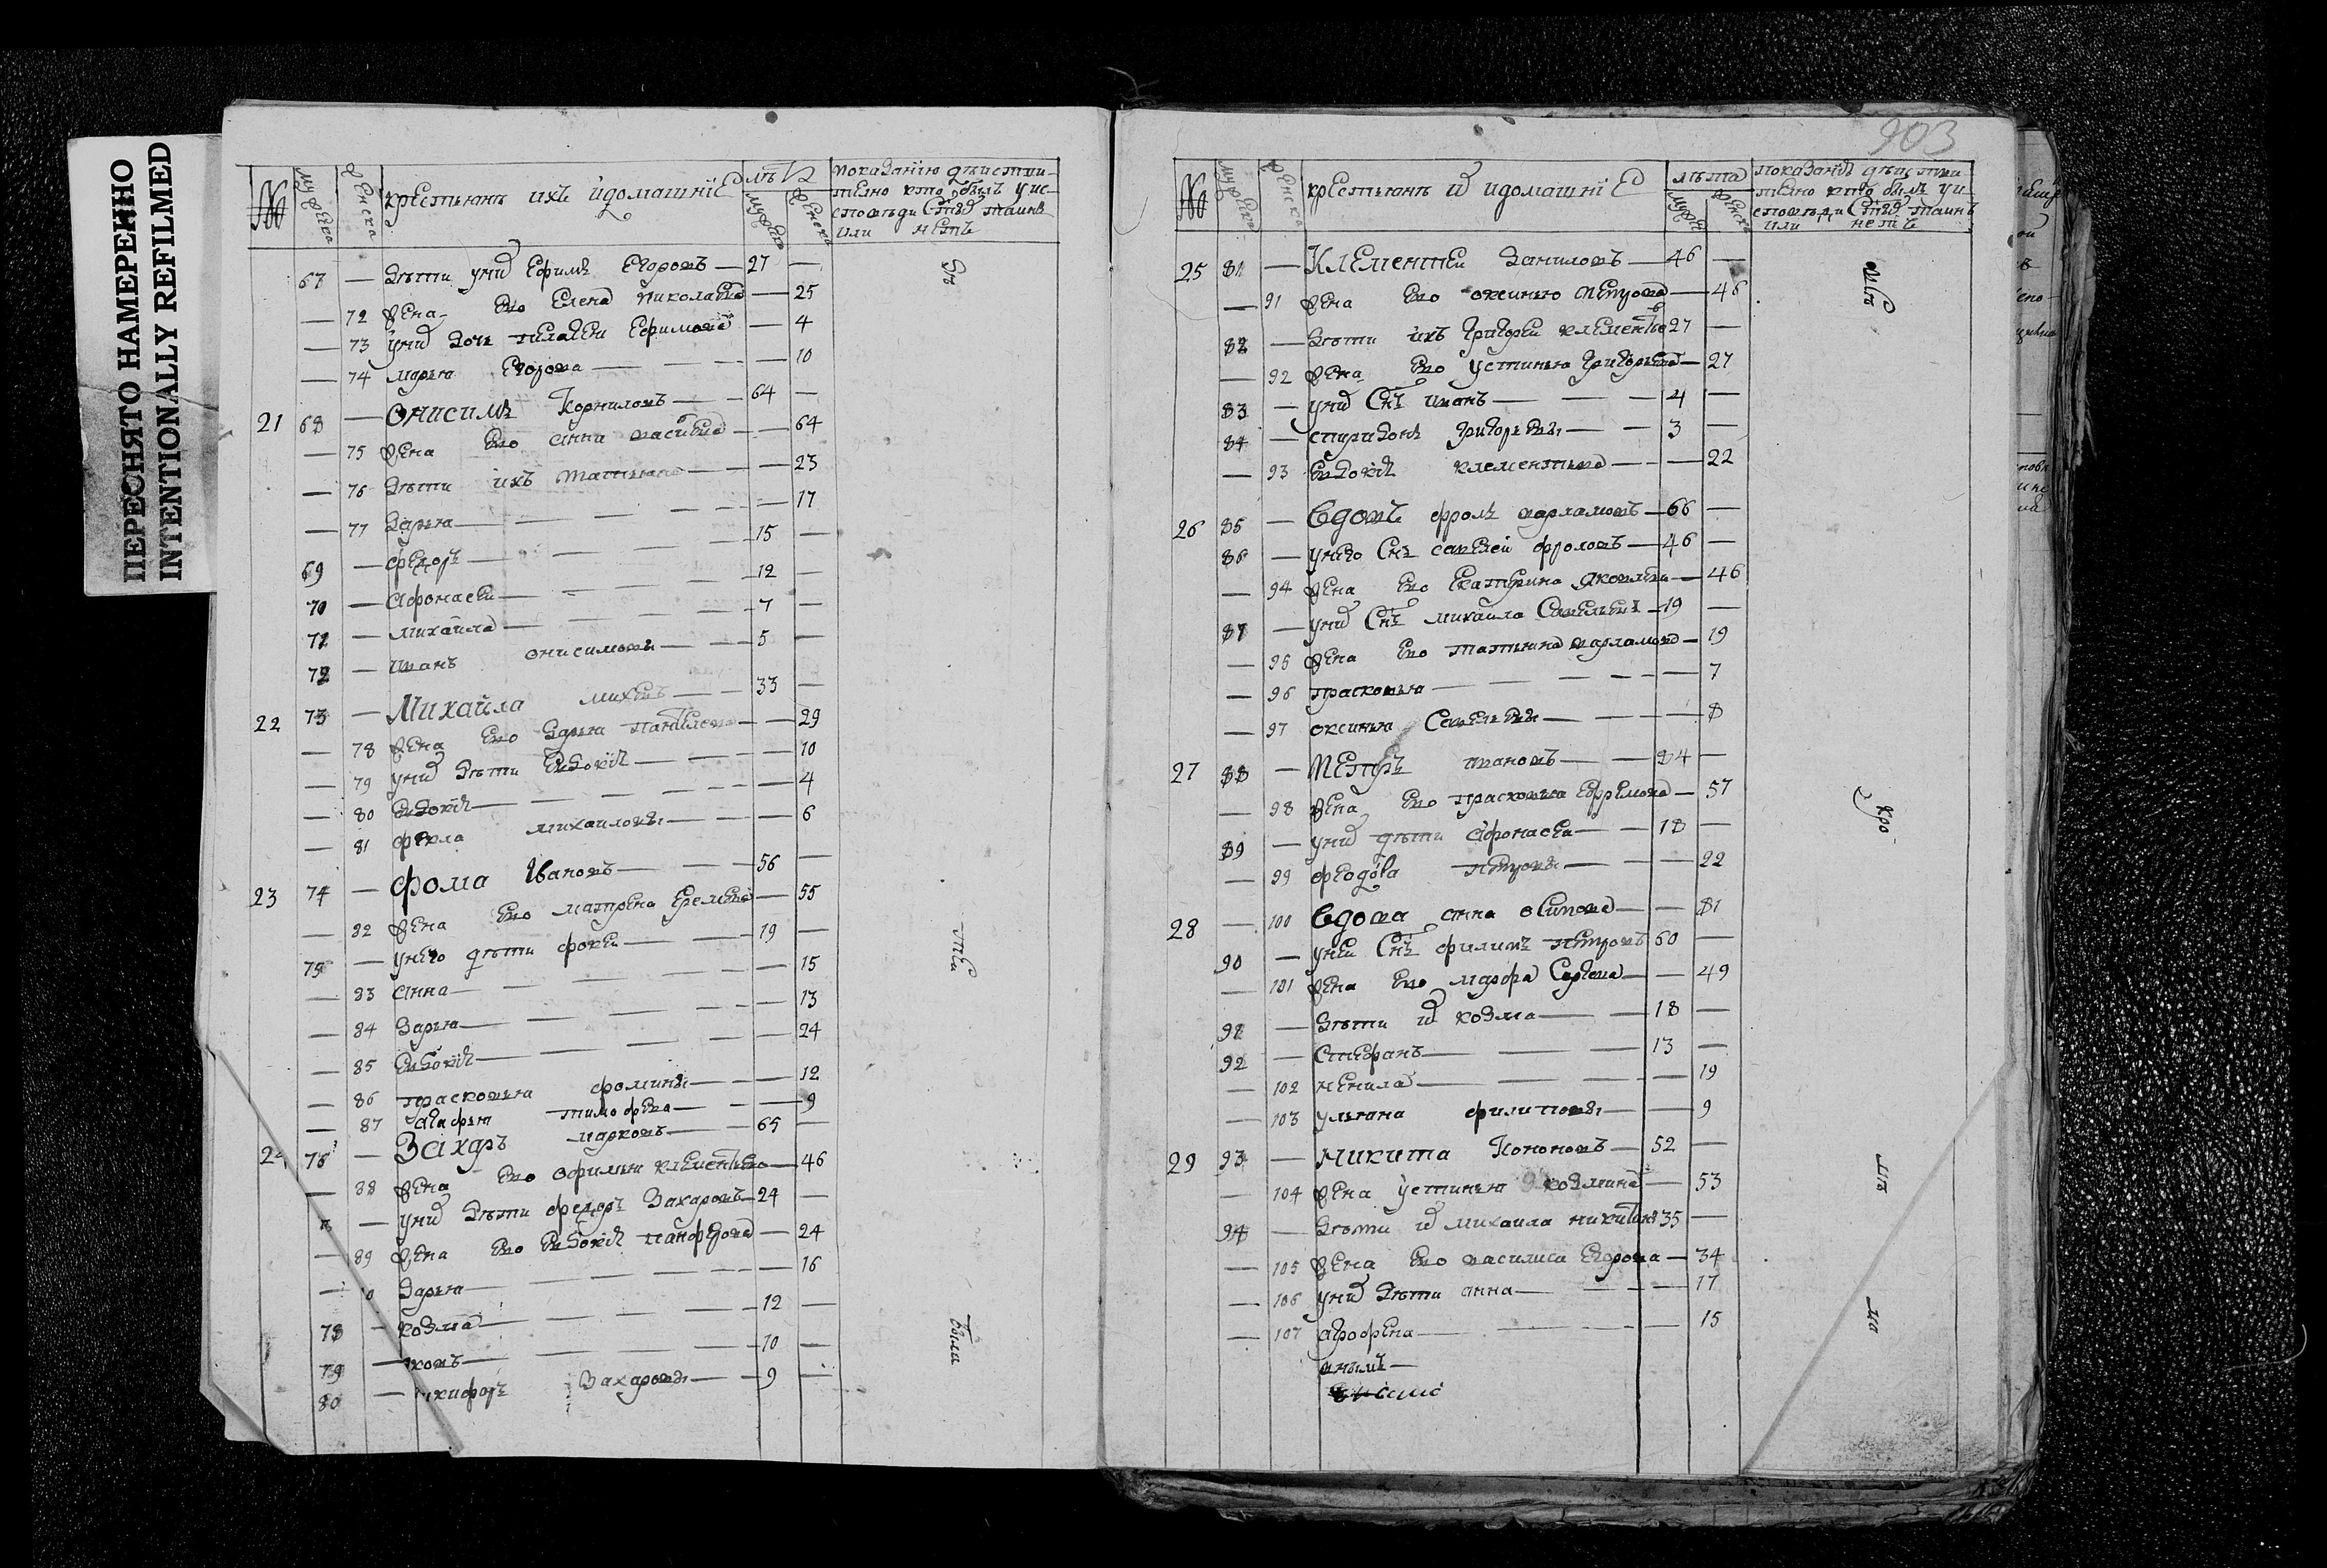 ПЕРЕСНЯТО НАМЕРЕННО
INTENTIONALLY REFILMED
№ мужеска женска крестьянъ ихъ и домашние лѣта мужеска женска показанию действи-
телно кто былъ у ис-
споведи святыхъ таинъ
или нетъ
67 — дѣти у них Ефимъ Егоровъ — 27 —
— 72 жена ево Елена Николаева — 25
— 73 у них дочь Пелагея Ефимова — 4
— 74 Марья Егорова — 10
21 68 — Онисимъ Корниловъ — 64 —
— 75 жена ево Анна Васильева — 64
— 76 дѣти ихъ Татьяна — 23
— 77 Дарья — 17
69 — Федоръ — 15 —
70 — Афонасеи — 12 —
71 — Михаила — 7 —
72 — Иванъ Онисимовы — 5 —
22 73 — Михайла Михеевъ — 33 —
— 78 жена ево Дарья Пантелеева — 29
— 79 у них дѣти Евдокия — 10
— 80 Евдокия — 4
— 81 Фекла Михаиловы — 6
23 74 — Фома Ивановъ — 56 —
— 82 жена ево Матрена Еремеева — 55
75 — у него дѣти Фокеи — 19 —
— 83 Анна — 15
— 84 Дарья — 13
— 85 Евдокия — 24
— 86 Прасковья Фомины — 12
— 87 Агафья Тимофеева — 9
24 76 — Захаръ Марковъ — 65 —
— 88 жена ево Офимья Клементьева — 46
— у них дѣти Федоръ Захаровъ — 24 —
— 89 жена ево Евдокия Панферова — 24
— Дарья — 16
78 — Козма — 12 —
79 — 10 —
80 — Захаровы — 9 —
были
903
№ мужеска женска крестьянъ их и домашние лѣта мужеска женска показание действи-
телно кто былъ у и
споведи святыхъ таинъ
или нетъ
25 81 — Клементеи Даниловъ — 46 —
— 91 жена ево Оксинья Петрова — 46
82 — дѣти ихъ Григореи Клементьевъ 27 —
— 92 жена ево Устинья Григорьева — 27
83 — у них снъ Иванъ — 4 —
84 — Спиридонъ Григорьевы — 3 —
— 93 Евдокия Клементьева — 22
26 85 — Вдовъ Фролъ Варламовъ — 66 —
86 — у него снъ Савелей Фроловъ — 46 —
— 94 жена ево Екатерина Яковлева — 46
87 — у них снъ Михаила Савельевъ — 19 —
— 95 жена ево Татьяна Варламова — 19
— 96 Прасковья — 7
— 97 Оксинья Савельевы — 8
27 88 — Петръ Ивановъ — 84 —
— 98 жена ево Прасковья Ефремова — 57
89 — у них дѣти Афонасеи — 18 —
— 99 Феодора Петровы — 22
28 — 100 Вдова Анна Осипова — 81
90 — у неи снъ Филипъ Петровъ 60 —
— 101 жена ево Марфа Сергеева — 49
91 — дѣти их Козма — 18 —
92 — Стефанъ — 13 —
— 102 Ненила — 19
— 103 Ульяна Филиповы — 9
29 93 — Никита Кононовъ — 52 —
— 104 жена Устинья Козмина — 53
94 — дѣти их Михаила Никитинъ 35 —
— 105 жена ево Василиса Егорова — 34
— 106 у них дѣти Анна — 17
— 107 Агрофена — 15